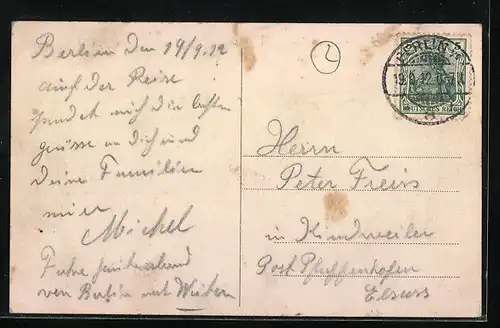 Berlin den 19/9.12
auf der Reise
sendet mich die besten
grüsse an dich und
deine Familien
Michel
von Berlin nach
2
BERLIN
DEUTSCHES REICH
Herrn
Peter Freiss
in Kindweiler
Post Pfaffenhofen
Elsass